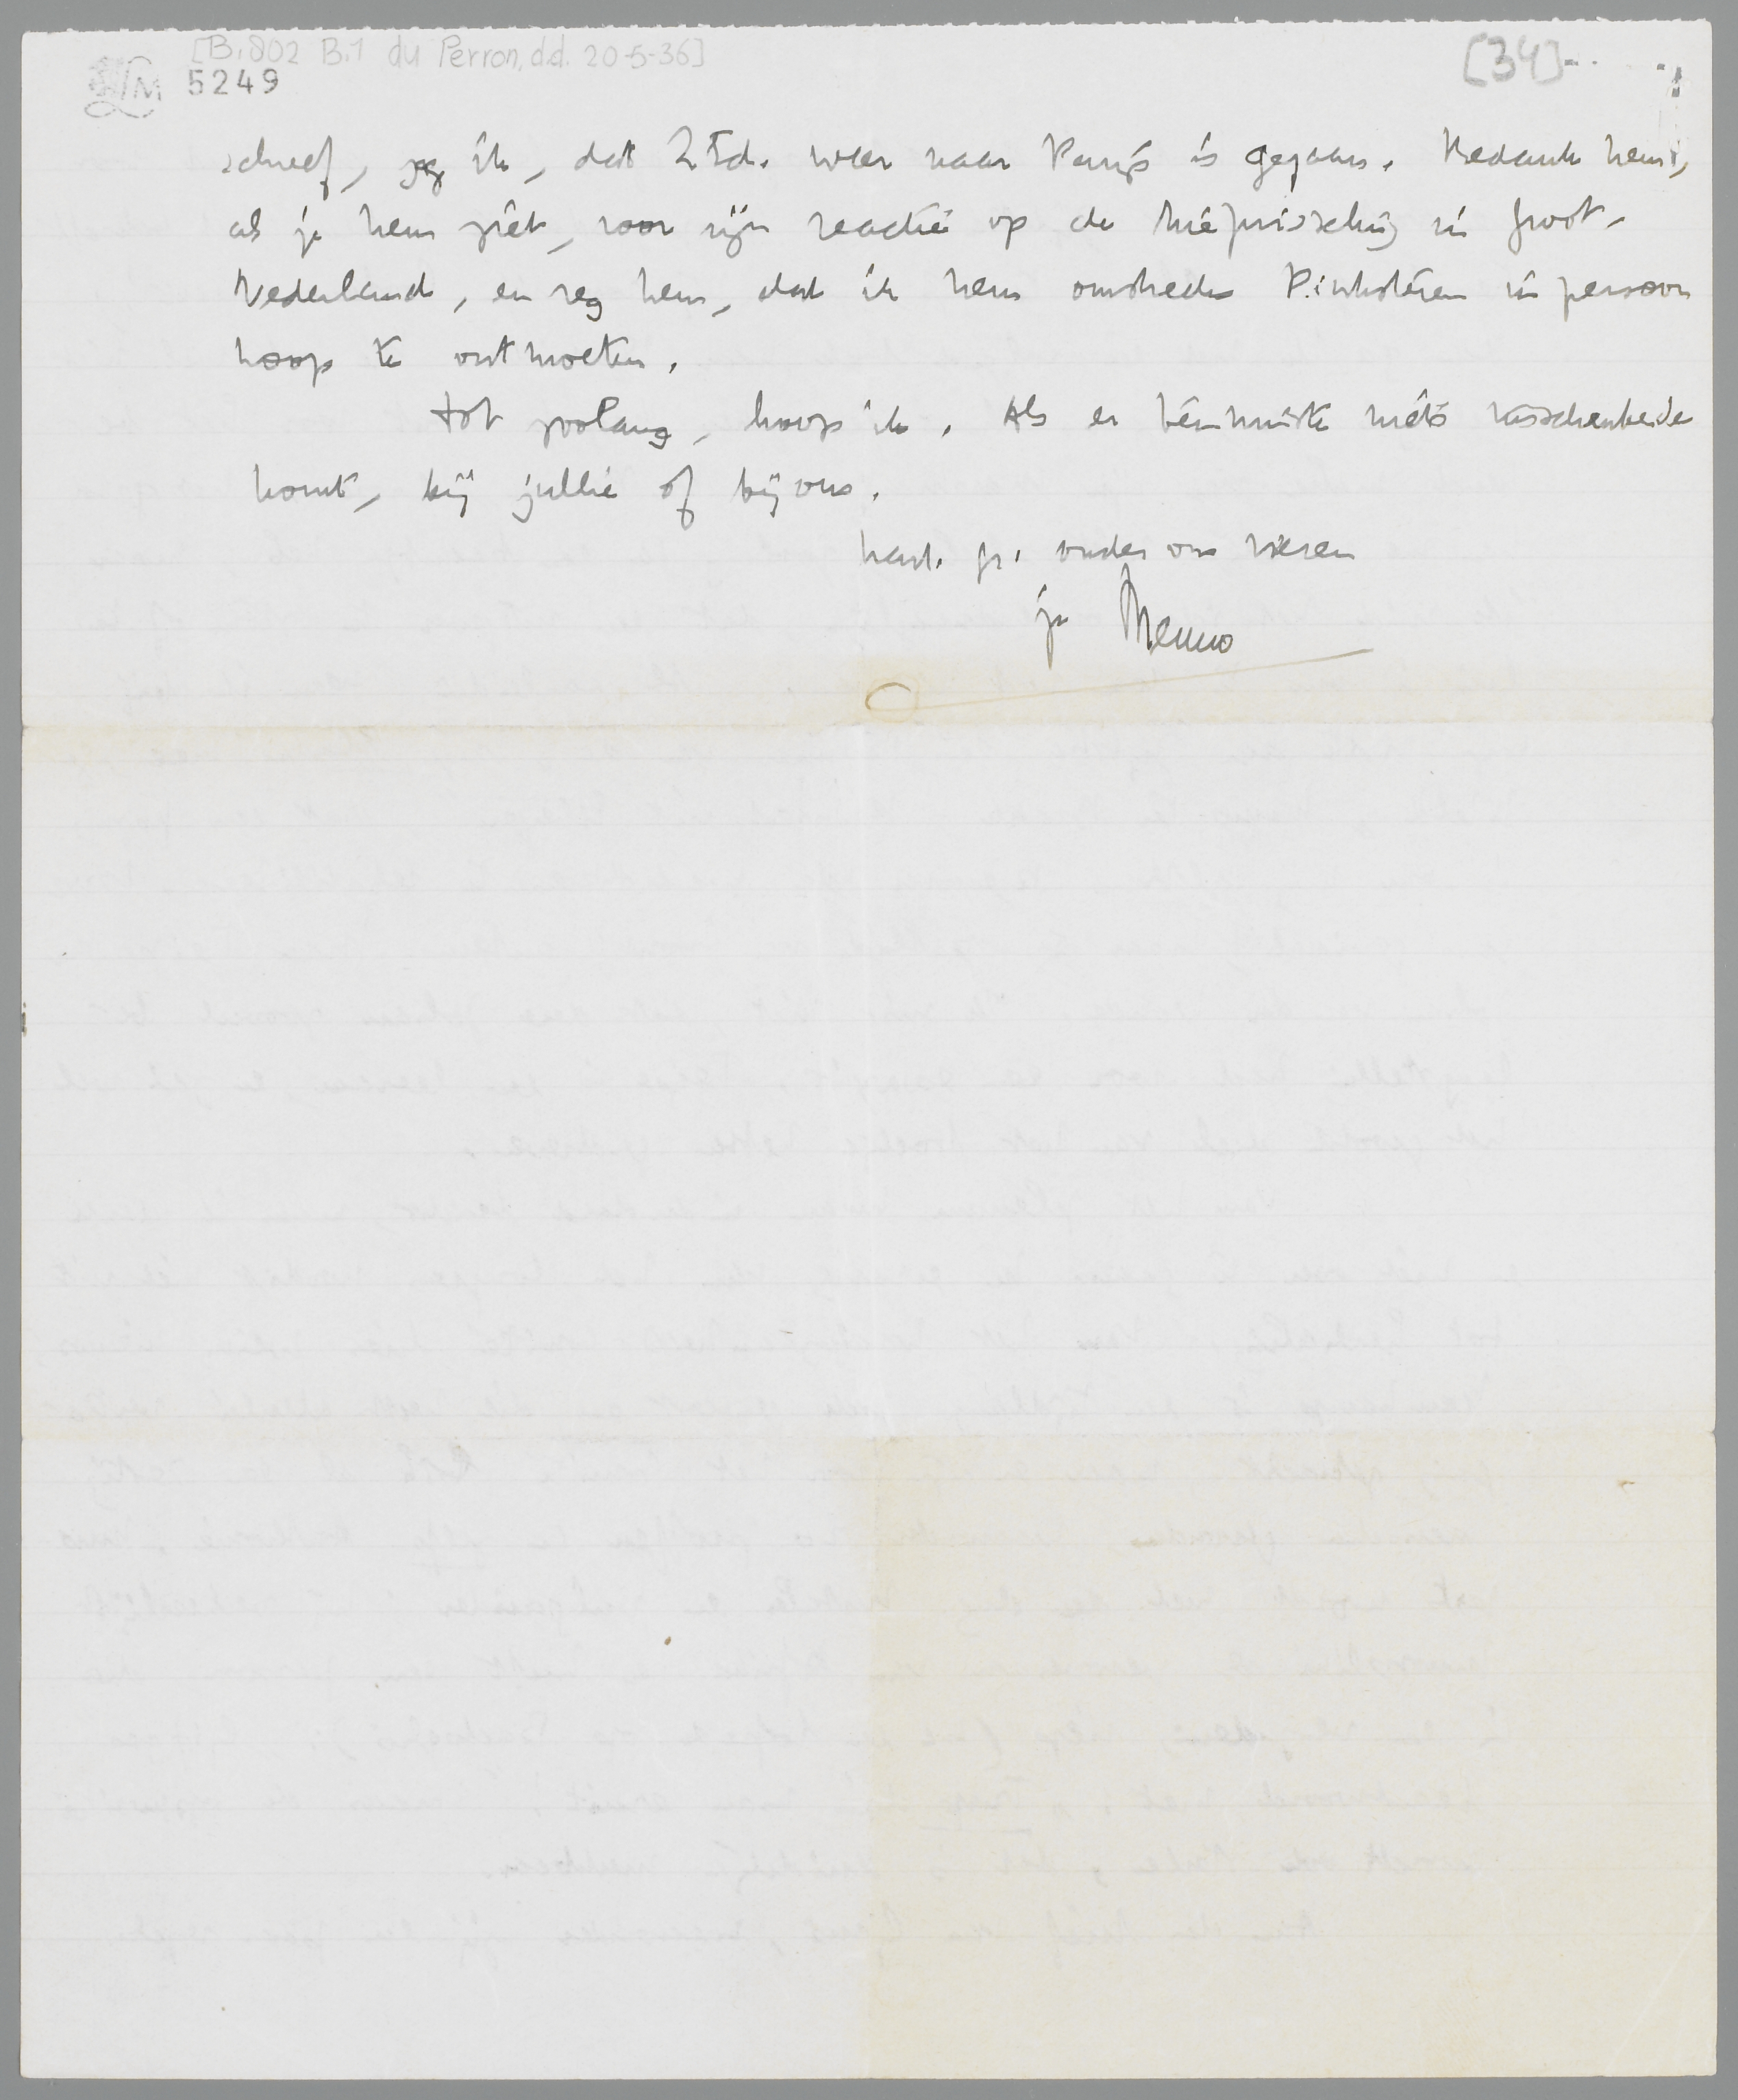 [B.802 B.1 du Perron, d.d. 20-5-36]
5249
[34]
schreef, zeg ik, dat Ltd. weer naar Parijs is gegaan. Bedank hem,
als je hem ziet, voor zijn reactie op de in Groot-
Nederland, en zeg hem, dat ik hem omstreeks Pinksteren in persoon
hoop te ontmoeten.
Tot zoolang, hoop ik. Als er tenminste niets tusschenbeide
komt, bij jullie of bij ons.
hart. gr. onder ons vieren
je Menno